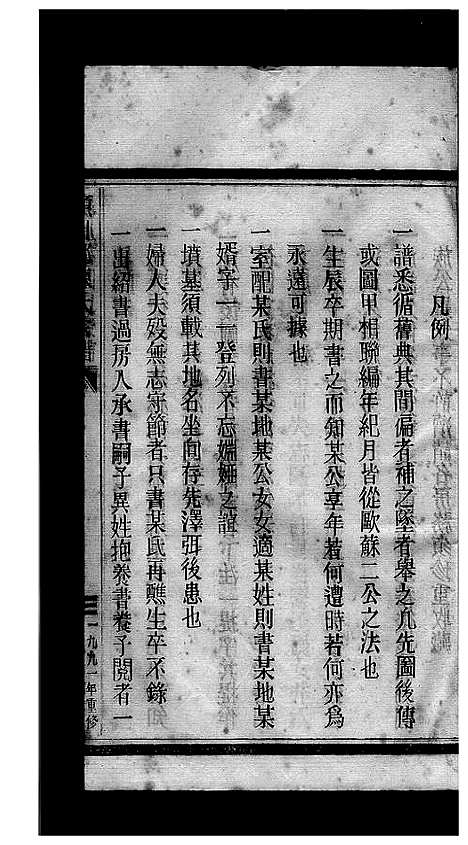 凡例
一譜悉循舊典其間偏者補之墜者舉之凡先圖後傳
或圖甲相聯編年紀月皆從歐蘇二公之法也
一生辰卒期書之而知某公享年若何遭時若何亦為
永遠可據也
一室配某氏則書某地某公女女適某姓則書某地某
婿字一一登列不忘姻婭之誼
一墳墓須載其地名坐向存先澤弭後患也
一婦人夫歿無志守節者只書某氏再醮生卒不錄
一出紹書過房入承書嗣子異姓抱養書養子閱者一
一九九一年重修